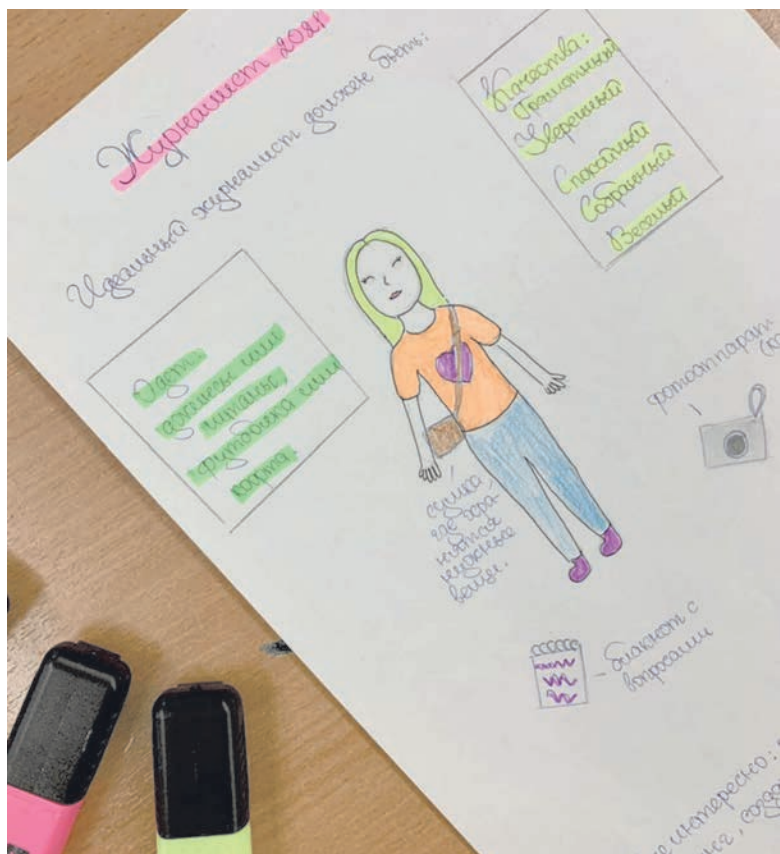 Журналист 2021
Идеальный журналист должен быть:
Качества:
Грамотный
Уверенный
Спокойный
Собранный
Веселый
Одет:
джинсы или
штаны,
футболка или
кофта.
сумка
где хра-
нятся
нужные
вещи.
фотоаппарат
блокнот с
вопросами
интересно: